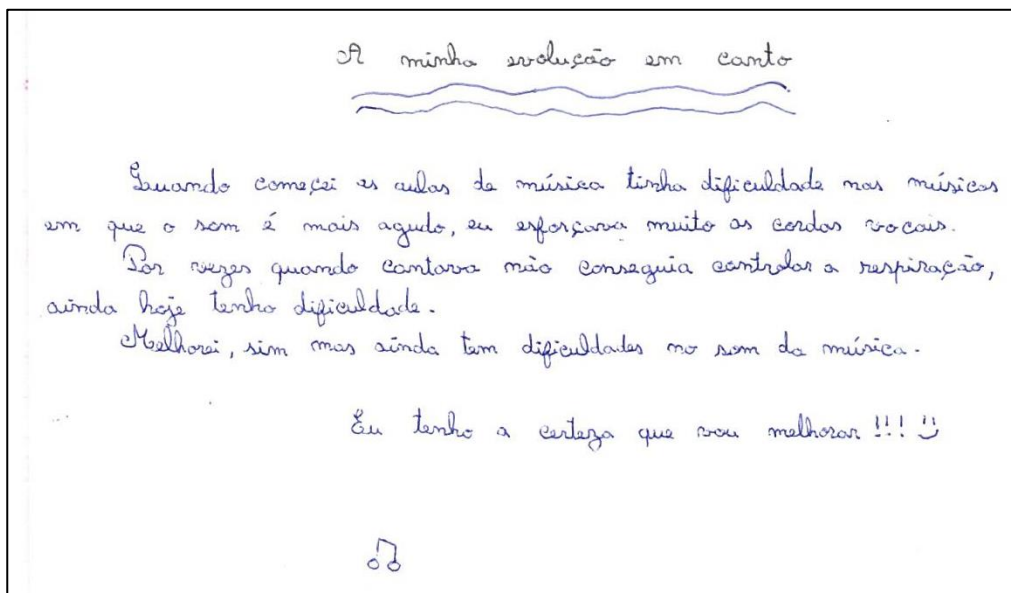 A minha evolução em canto
Quando começei as aulas de música tinha dificuldade nas músicas
em que o som é mais agudo, eu esforçava muito as cordas vocais.
Por vezes quando cantava não conseguia controlar a respiração,
ainda hoje tenho dificuldade.
Melhorei, sim mas ainda tem dificuldades no som da música.
Eu tenho a certeza que vou melhorar!!! :)